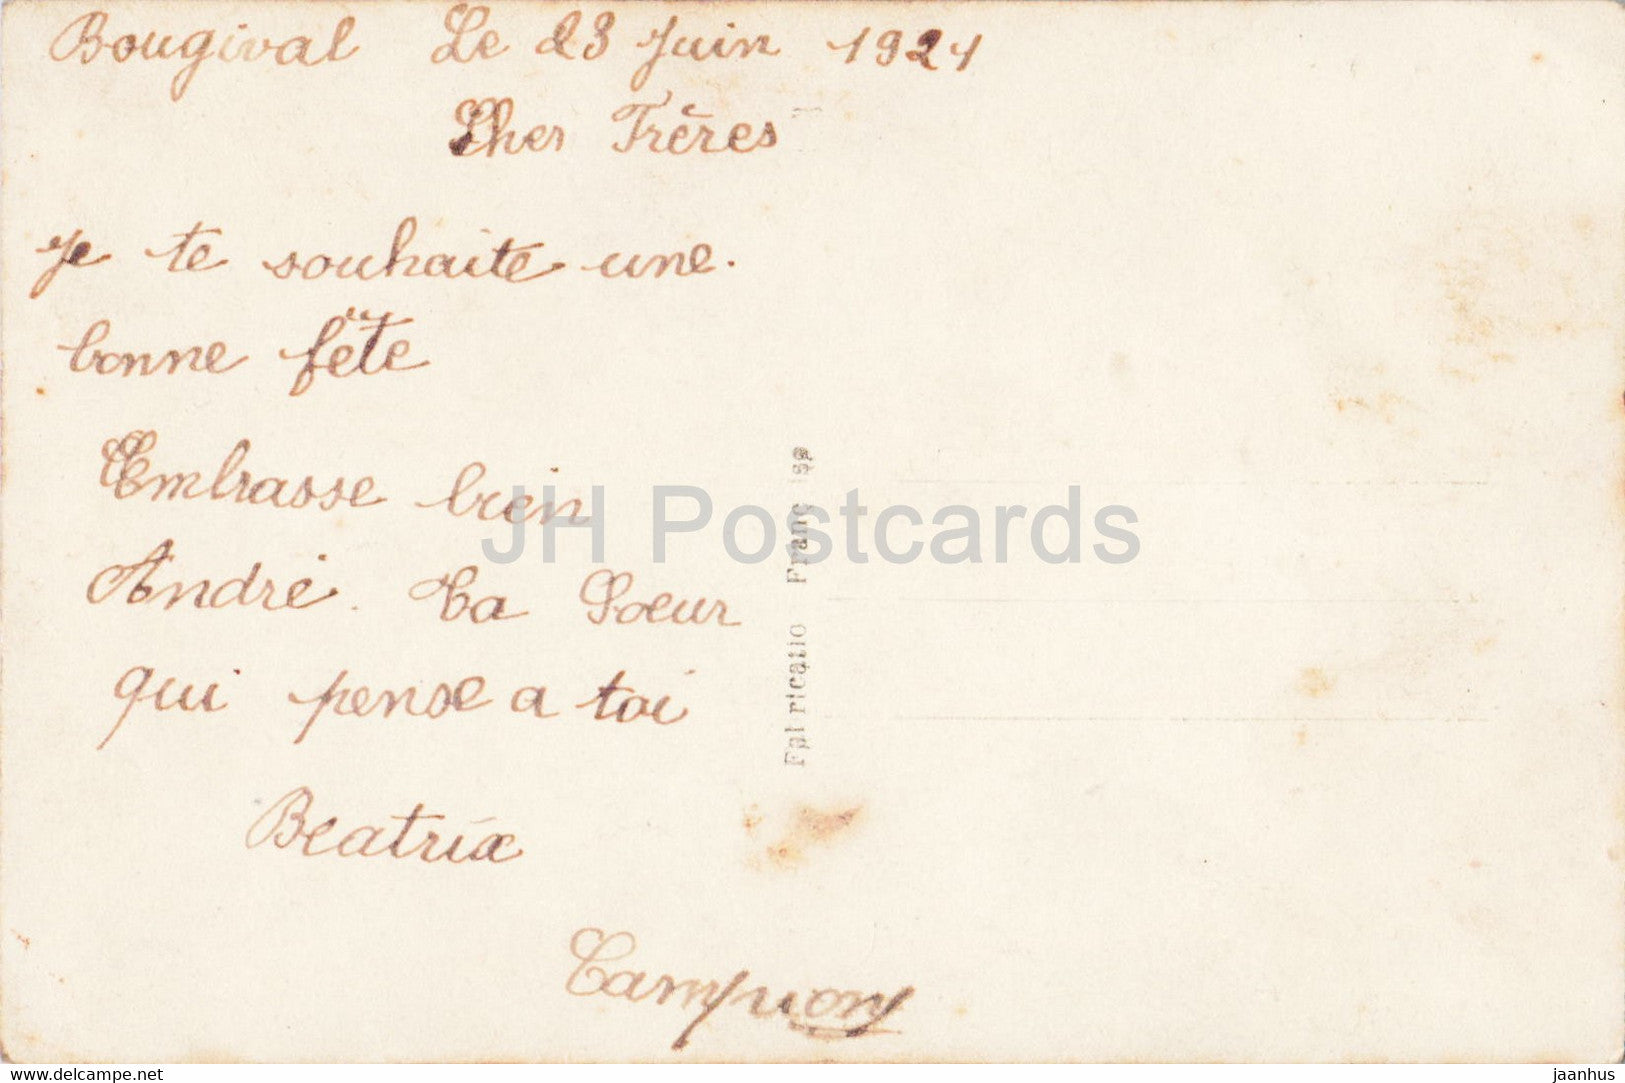 Bougival Le 23 Juin 1924
Cher Frères
Je te souhaite une.
bonne fête
Embrasse bien
André. Ta Soeur
qui pense a toi
Beatrix
Campion
Fabrication Française
JH Postcards
www.delcampe.net
jaanhus